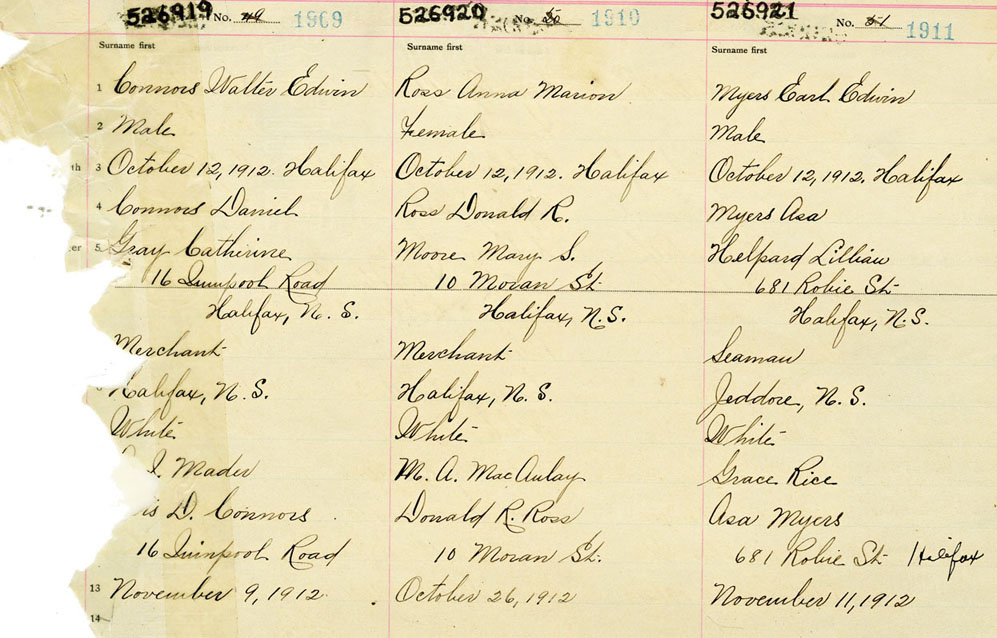 526919 No. 49 1909
Surname first
1 Connors Walter Edwin
2 Male
th 3 October 12, 1912. Halifax
4 Connors Daniel
er 5 Gray Catherine
16 Quinpool Road
Halifax, N. S.
Merchant
Halifax, N. S.
White
J. Mader
is D. Connors
16 Quinpool Road
13 November 9, 1912.
14
526920 No. 50 1910
Surname first
Ross Anna Marion
Female
October 12, 1912. Halifax
Ross Donald R.
Moore Mary S.
10 Moran St.
Halifax, N.S.
Merchant
Halifax, N. S.
White
M. A. MacAulay
Donald R. Ross
10 Moran St.
October 26, 1912
526921 No. 51 1911
Surname first
Myers Earl Edwin
Male
October 12, 1912. Halifax
Myers Asa
Helpard Lillian
681 Robie St.
Halifax, N.S.
Seaman
Jeddore, N. S.
White
Grace Rice
Asa Myers
681 Robie St. Halifax
November 11, 1912